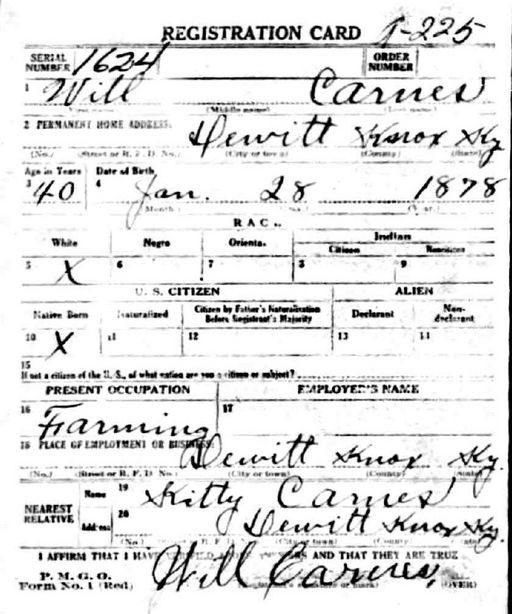 REGISTRATION CARD
SERIAL NUMBER 1624 ORDER NUMBER 225
1 Will Carnes
(Middle name)
2 PERMANENT HOME ADDRESS:
Dewitt Knox Ky
(No.) (Street or R. F. D. No.) (City or town) (County) (State)
Age in Years Date of Birth
3 40 4 Jan. 28 1878
(Month)
RACE
White Negro Oriental Indian
Citizen Noncitizen
5 X 6 7 8 9
U. S. CITIZEN ALIEN
Native Born Naturalized Citizen by Father's Naturalization Before Registrant's Majority Declarant Non-declarant
10 X 11 12 13 14
15
If not a citizen of the U. S., of what nation are you a citizen or subject?
PRESENT OCCUPATION EMPLOYER'S NAME
16 Farming 17
18 PLACE OF EMPLOYMENT OR BUSINESS:
Dewitt Knox Ky.
(No.) (Street or R. F. D. No.) (City or town) (County) (State)
NEAREST RELATIVE Name 19 Kitty Carnes
Address 20 Dewitt Knox Ky.
(No.) (City or town) (County)
I AFFIRM THAT I HAVE AND THAT THEY ARE TRUE
P. M. G. O.
Form No. 1 (Red) Will Carnes (OVER)